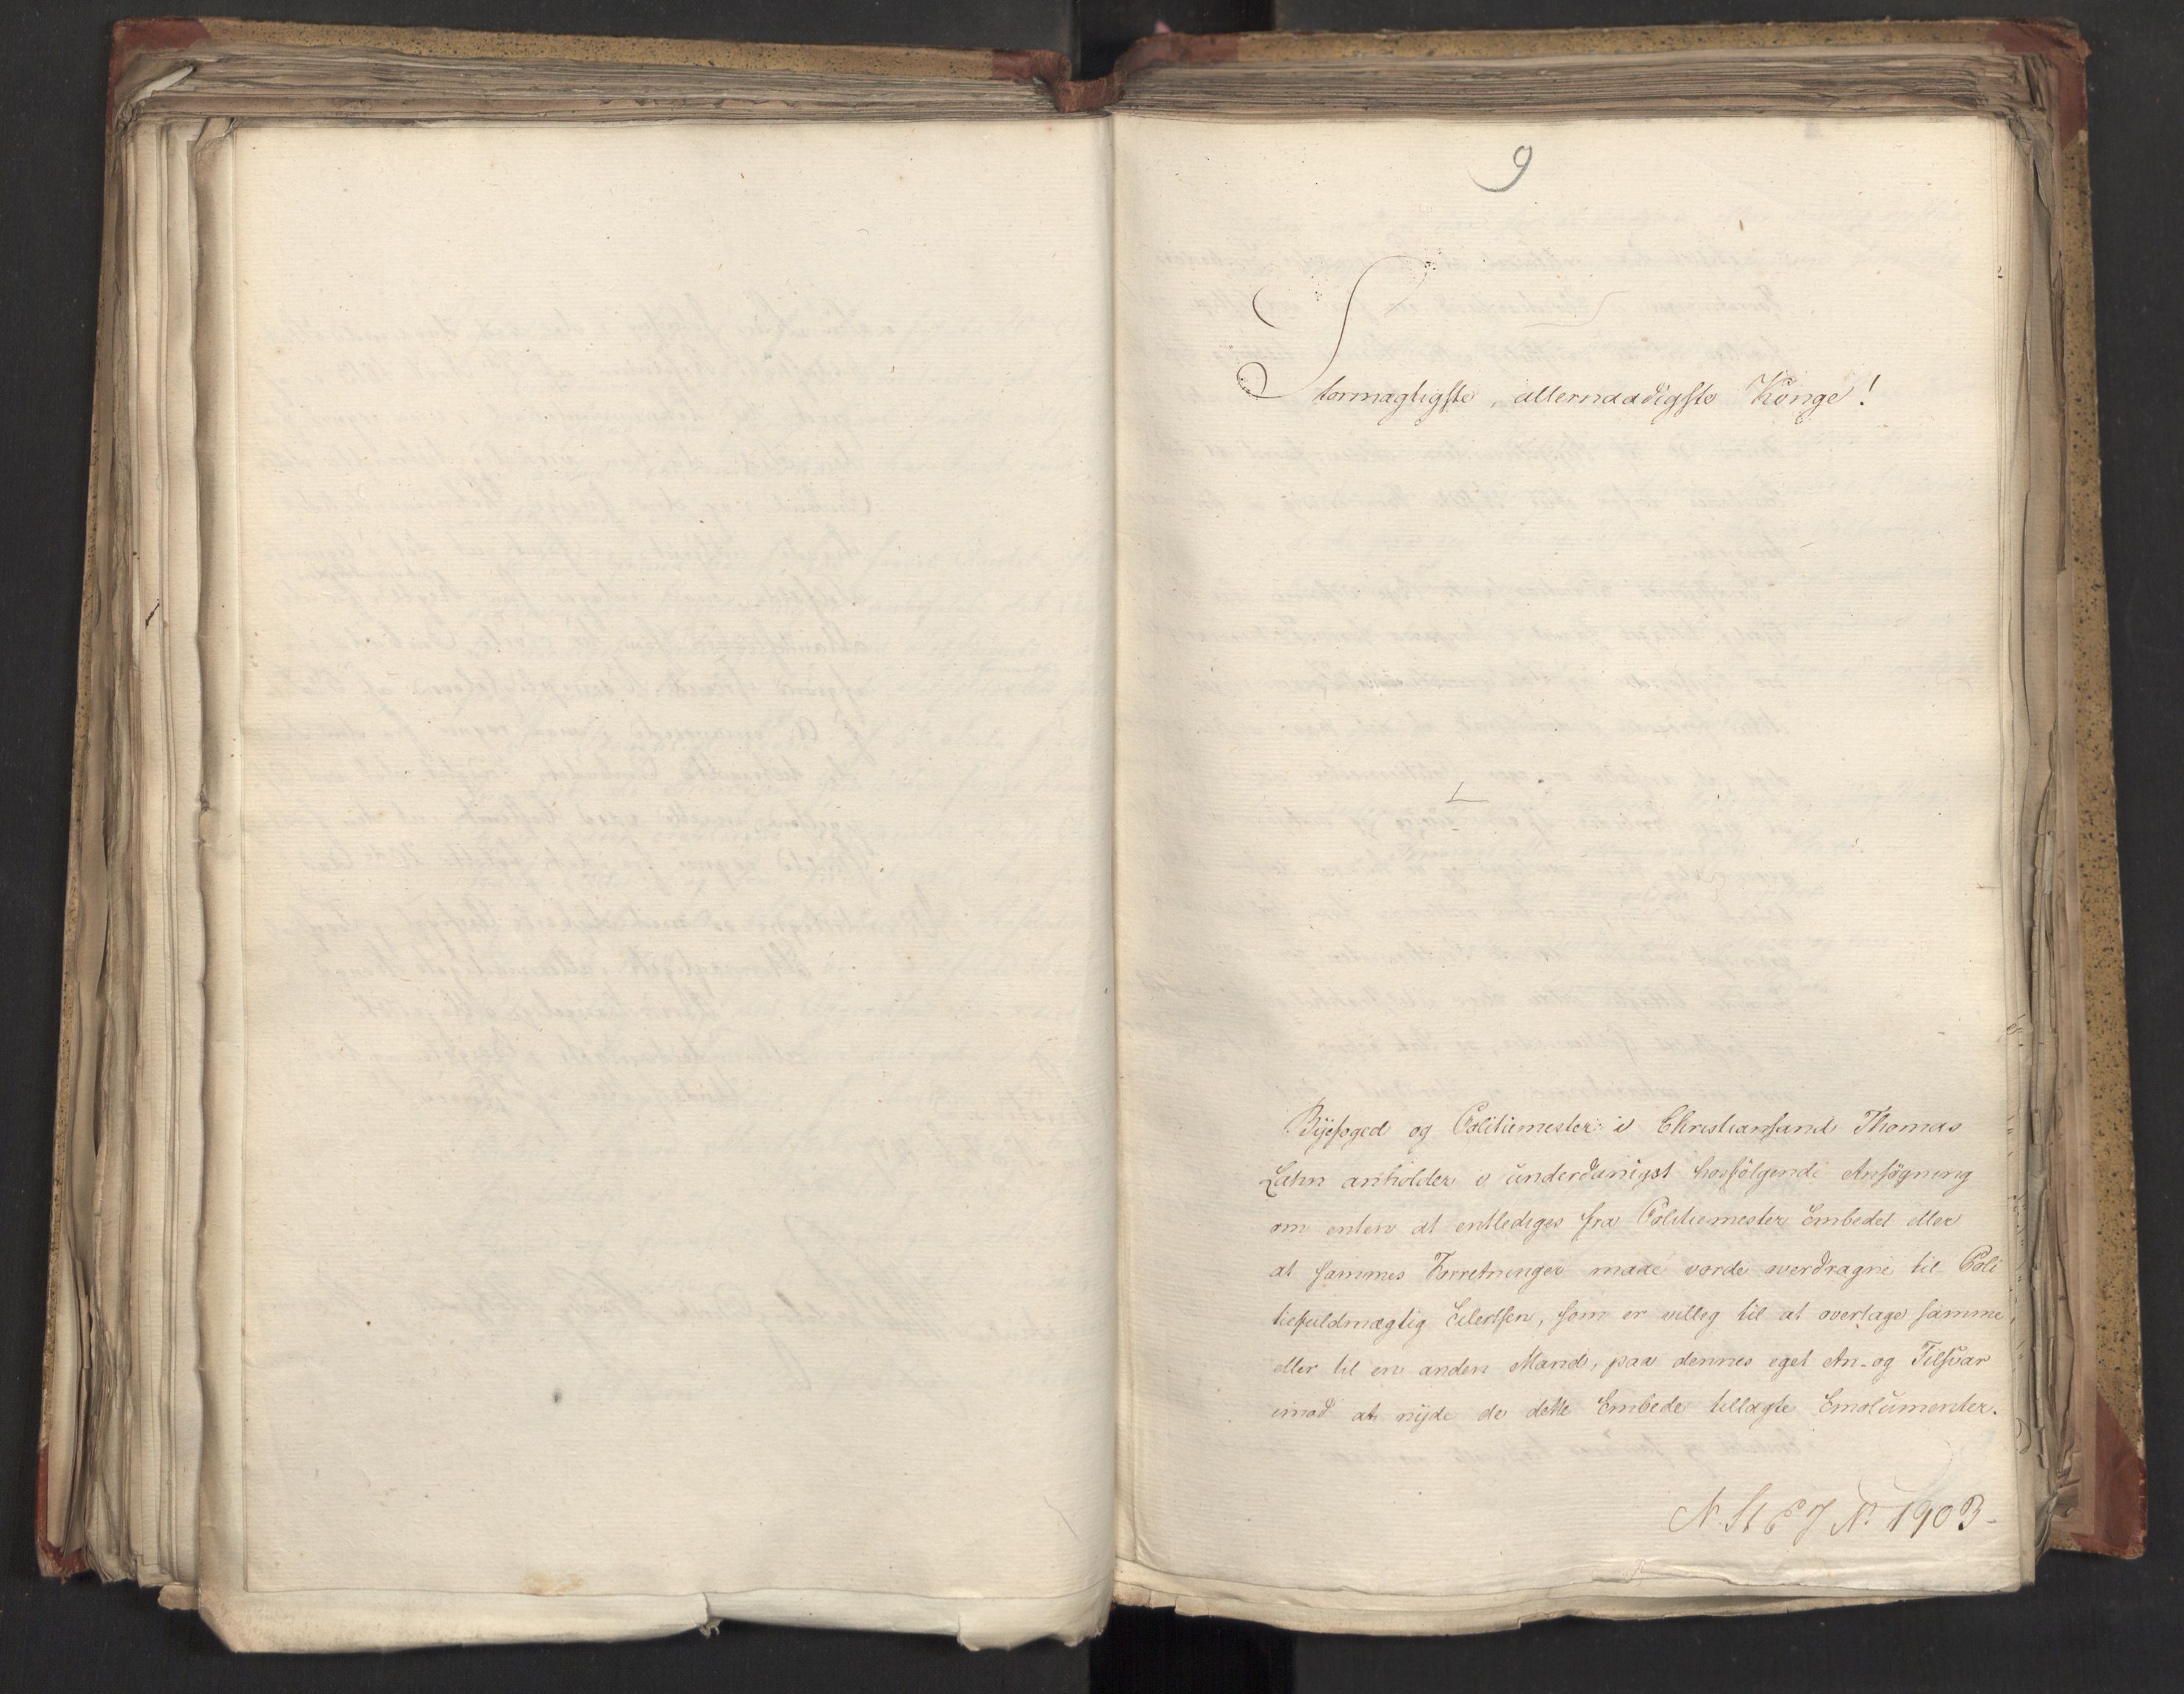 9
Stormægtigste, allernaadigste Konge!
Byefoged og Politiemester i Christiansand Thomas
Lahn anholder i underdanigst hosfølgende Ansøgning
om enten at entlediges fra Politiemester Embedet eller
at sammes Forretninger maae vorde overdragne til Poli
tiefuldmægtig Eilertsen, som er villig til at overtage samme
eller til en anden Mand, paa dennes eget An- og Tilsvar
imod at nyde de dette Embede tillagte Emolumenter.
N. St E J No 1903-